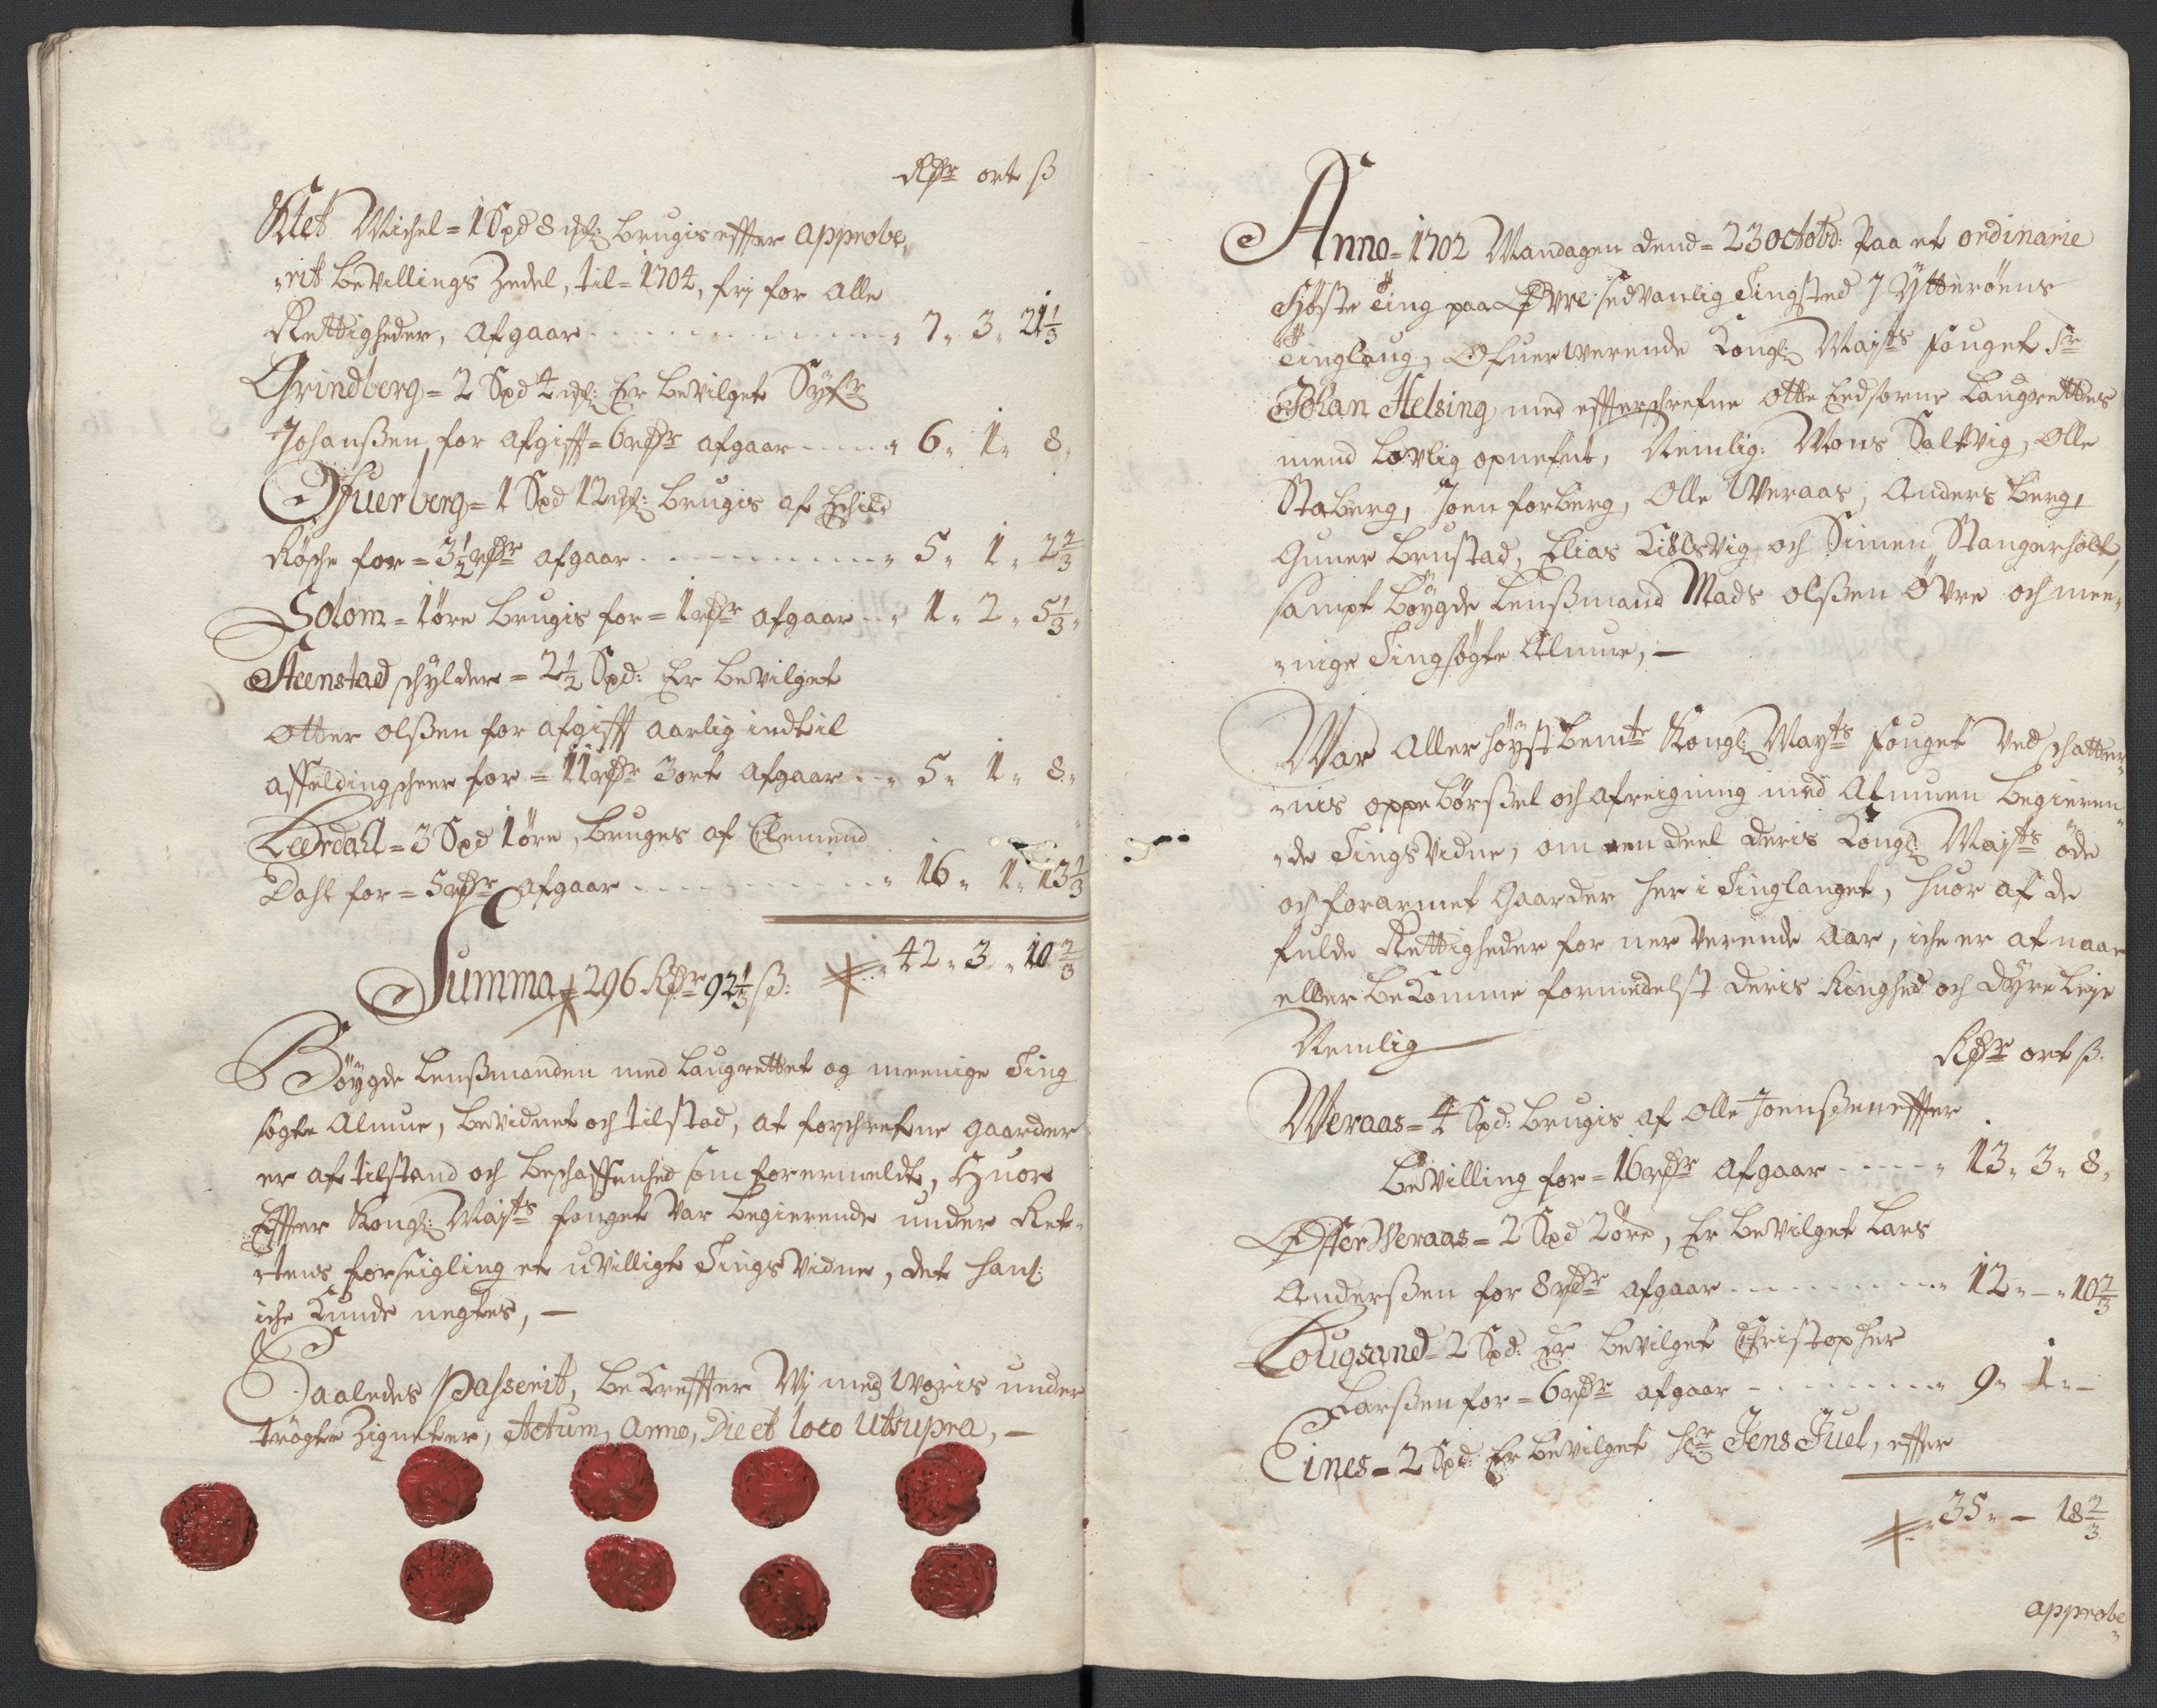 Rdr ort ß
Slet Michel = 1 Spd 8 mk: brugis effter approbe¸
¸rit bevillings Zedel, til = 1704, frj for alle
Rettigheder, afgaar - - - - - - - 7 " 3 " 21 1/3
Grindberg = 2 Spd 4 mk: Er bevilget Syfr
Johanßen, for afgifft = 6 rdr afgaar - - - - 6 " 1 " 8 "
Ofuerberg = 1 Spd 12 mk: brugis af Eschild
Røsche for = 3 1/2 rdr afgaar - - - - - - 5 " 1 " 2 2/3
Solom = 1 øre brugis for = 1 rdr afgaar - - 1 " 2 " 5 1/3 "
Steenstad schylder = 2 1/2 Spd: Er bevilget
Otter olßen for afgifft aarlig indtil
affeldingscheer for = 11 rdr 3 ort afgaar - - 5 " 1 " 8 "
Leerdall = 3 Spd 1 øre, bruges af Clemend
Dahl for = 5 rdr afgaar - - - - - - 16 " 1 " 13 1/3
42 " 3 " 10 2/3
Summa = 296 Rdr 92 1/3 ß:
Bøygde Lenßmanden med Laugrettet og meenige Ting
søgte Almue, bevidnet och tilstod, at forschrefne gaarder
er af tilstand och beschaffenhed som forermeldt, Huor
Effter Kongl: Mayts fouget var begierende under Ret¸
¸tens forseigling et uvilligt Tings Vidne, det hanß
iche Kunde negtes, —
Saaledes Passerit, bekreffter Wj med Woris under
trøgte Zigneter, Actum, Anno, Die et loco Utsupra, —
Anno = 1702 Mandagen dend = 23 octobd: paa et ordinarie
Høste ting paa Øvre sedvanlig Tingsted J Ytterøens
Tinglaug, Ofuerwerende Kongl: Mayts fouget Sr
Johan Helsing, med effterschrefne otte Eedsorne Laugrettes
mend lovlig opnefnt, Nemlig: Mons Saltvig, Olle
Staberg, Joen forberg, Olle Weraas, Anders berg,
Guner brustad, Elias Kiølsvig, och Simen Stangerholt,
sampt bøygde Lenßmand Mads olßen Øvre och mee¸
¸nige Tingsøgte Almue, —
War allerhøystbemte Kongl: Mayts fouget ved schatter¸
¸nis oppebørßel och afreigning med Almuen begieren¸
¸de Tings Vidne, om een deel deris Kongl: Mayts øde
och forarmet Gaarder her i Tinglauget, huor af de
fulde Rettigheder for nerverende Aar, iche er at naae
eller bekomme formedelst deris Ringhed och dyre leje
Nemlig
Rdr ort ß.
Weraas = 4 Spd: brugis af Olle Joenßen effter
bevilling for = 16 rdr afgaar - - - - - 13 " 3 " 8 "
Øfter Weraas = 2 Spd 2 øre, Er bevilget Lars
Anderßen for 8 rdr afgaar - - - - - - - 12 " — " 10 2/3
Lougsand = 2 Spd: Er bevilget Christopher
Larßen for = 6 rdr afgaar - - - - - - - 9 " 1 " —
Eines = 2 Spd: Er bevilget Hr Jens Juel, effter
35 " — 18 2/3
approbe¸